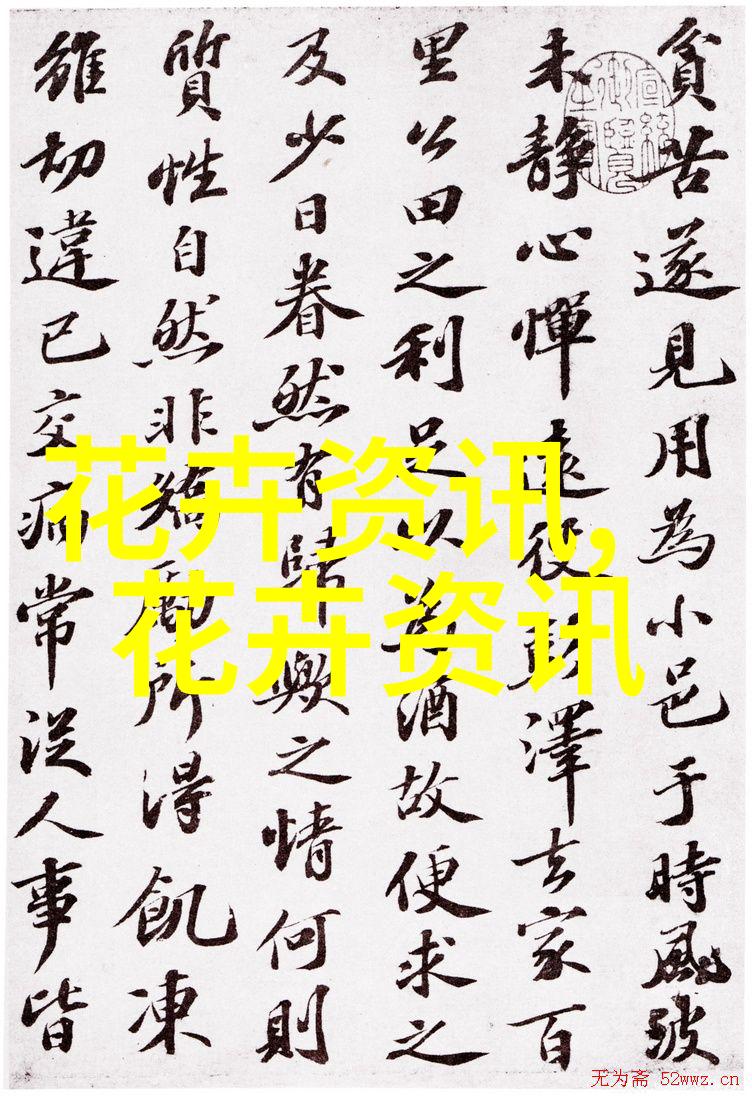 貧苦遂見用為小邑于時風波
未静心憚遠役彭澤去家百
里公田之利足以為酒故便求之
及少日眷然有歸歟之情何則
質性自然非矯厲所得飢凍
雖切違己交病常從人事皆
花卉资讯,
花卉资讯
无为斋 52wwz.cn